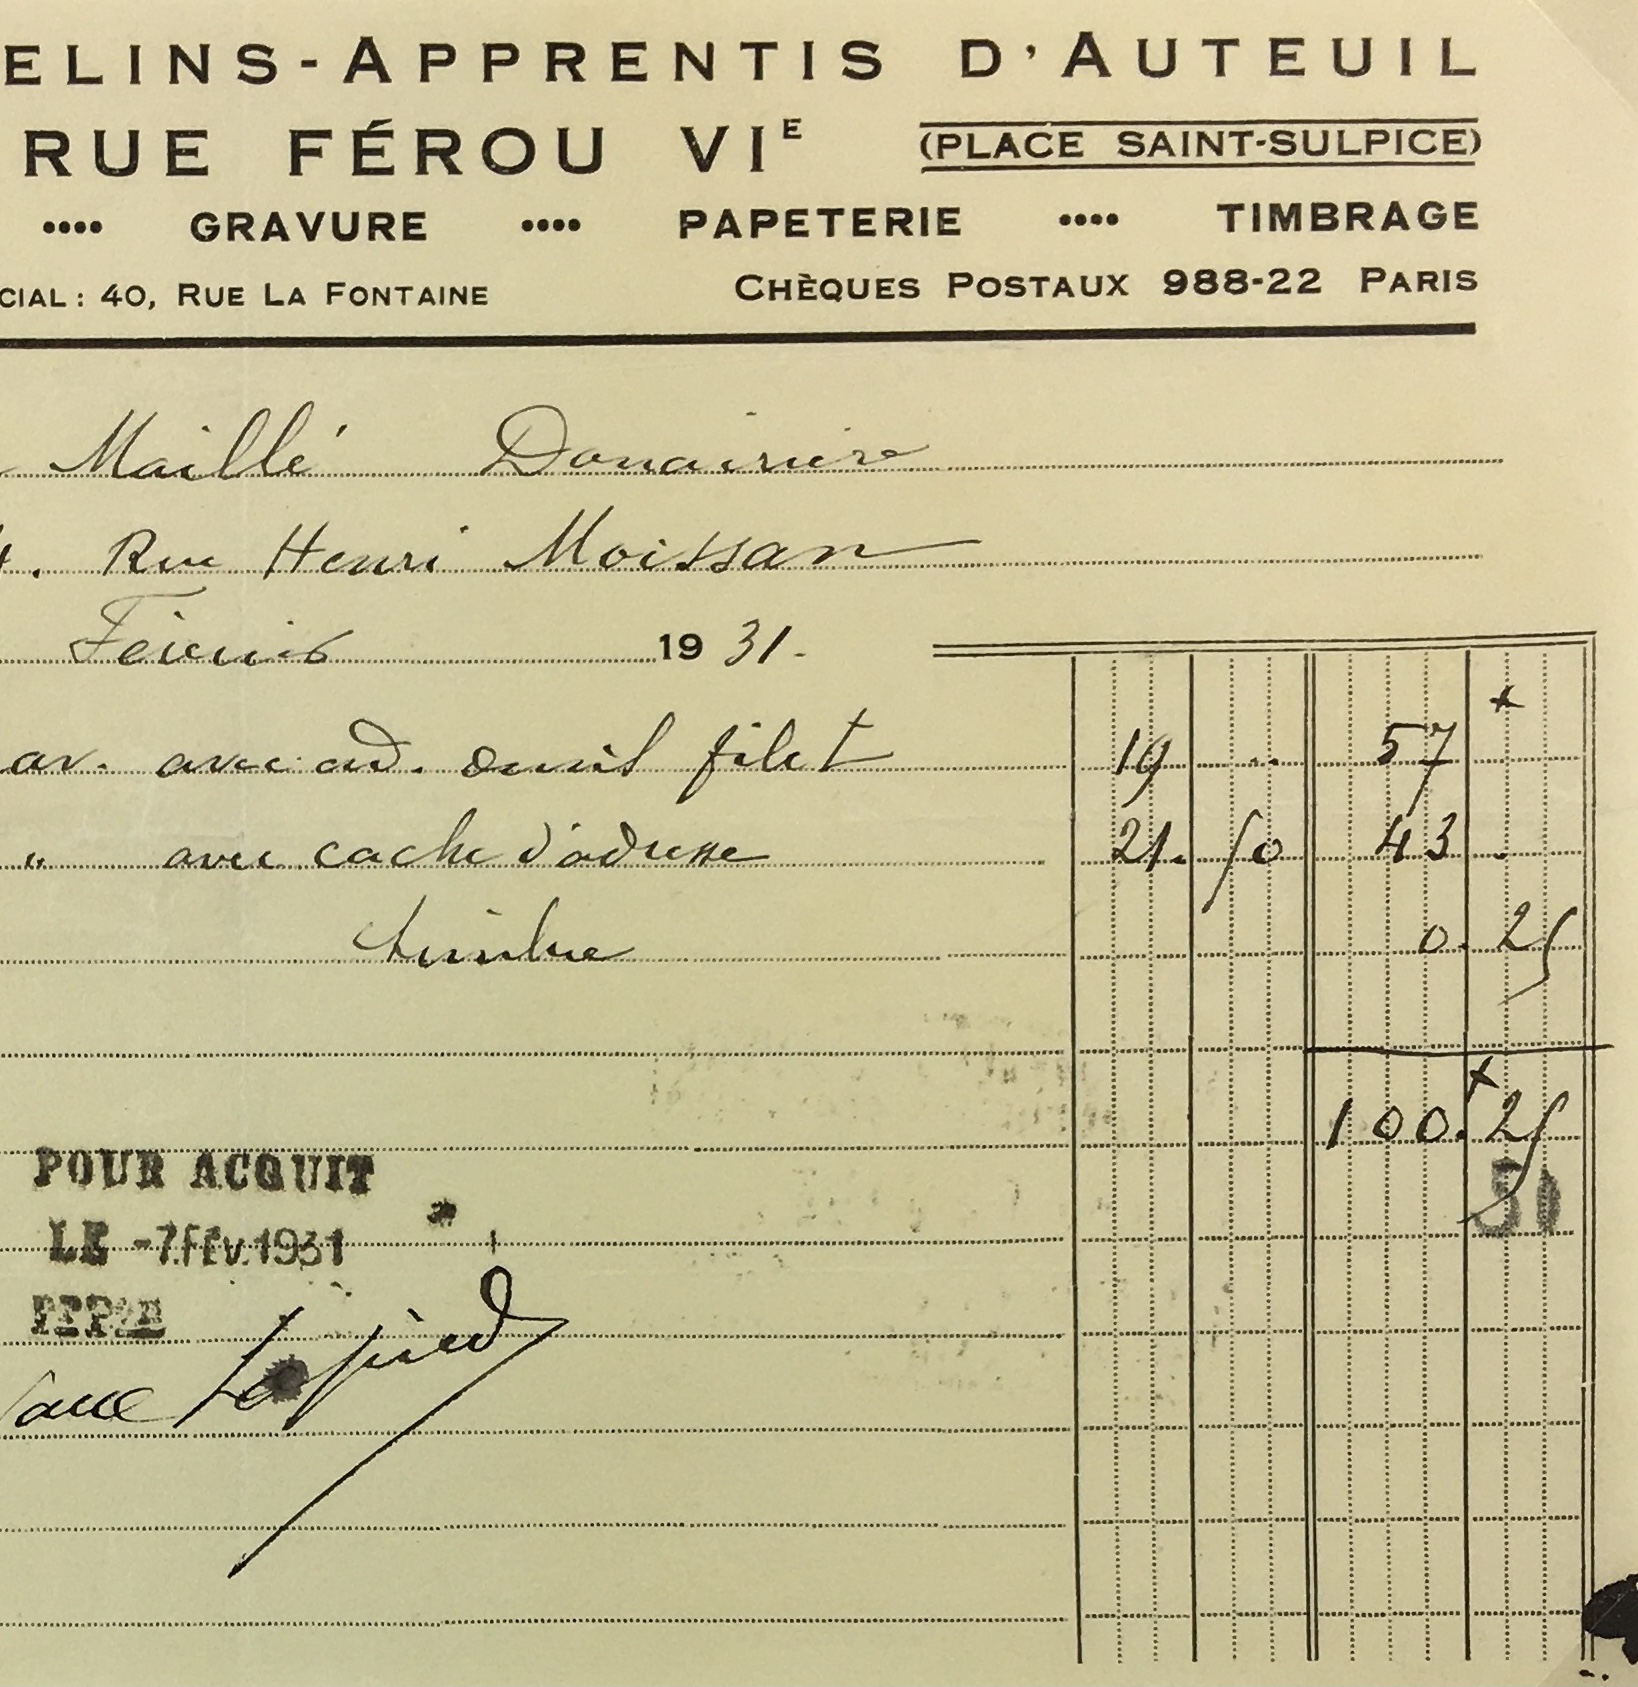 ELINS-APPRENTIS D'AUTEUIL
RUE FÉROU VIE (PLACE SAINT-SULPICE)
•••• GRAVURE •••• PAPETERIE •••• TIMBRAGE
CIAL : 40, RUE LA FONTAINE CHÈQUES POSTAUX 988-22 PARIS
Maillé Douairière
4. Rue Henri Moissan
Février 1931.
av. avec ad. deuil filet 19 .. 57
" avec cache d'adresse 21. 50 43 .
timbre 0. 25
100. 25
50
POUR ACQUIT
LE -7.FEV.1931